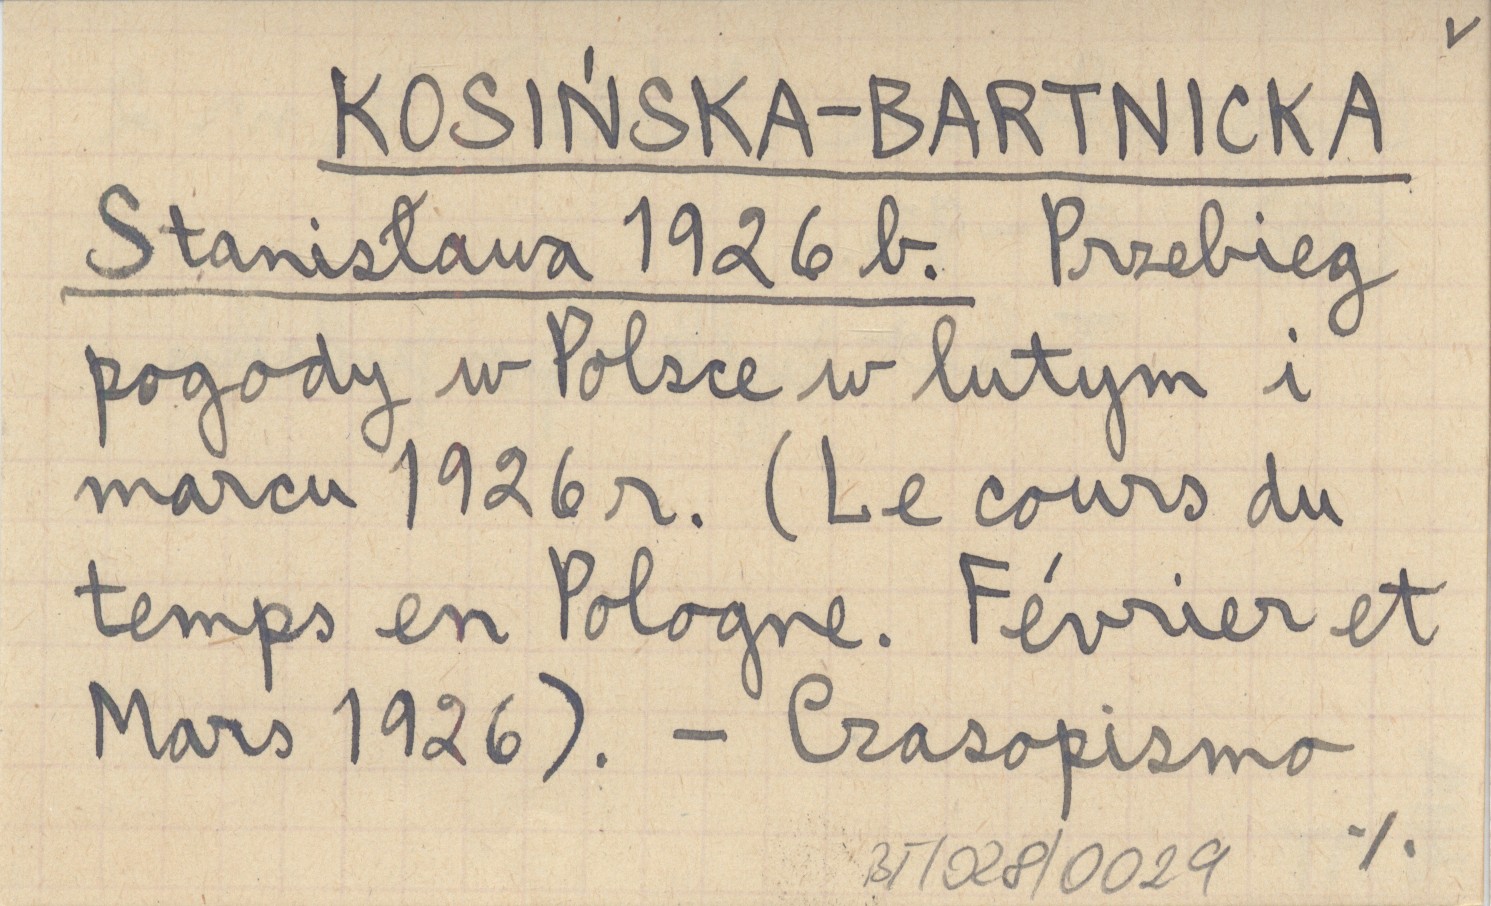 v
KOSIŃSKA-BARTNICKA
Stanisława 1926 b. Przebieg
pogody w Polsce w lutym i
marcu 1926 r. (Le cours du
temps en Pologne. Février et
Mars 1926). - Czasopismo
./.
BT/028/0029